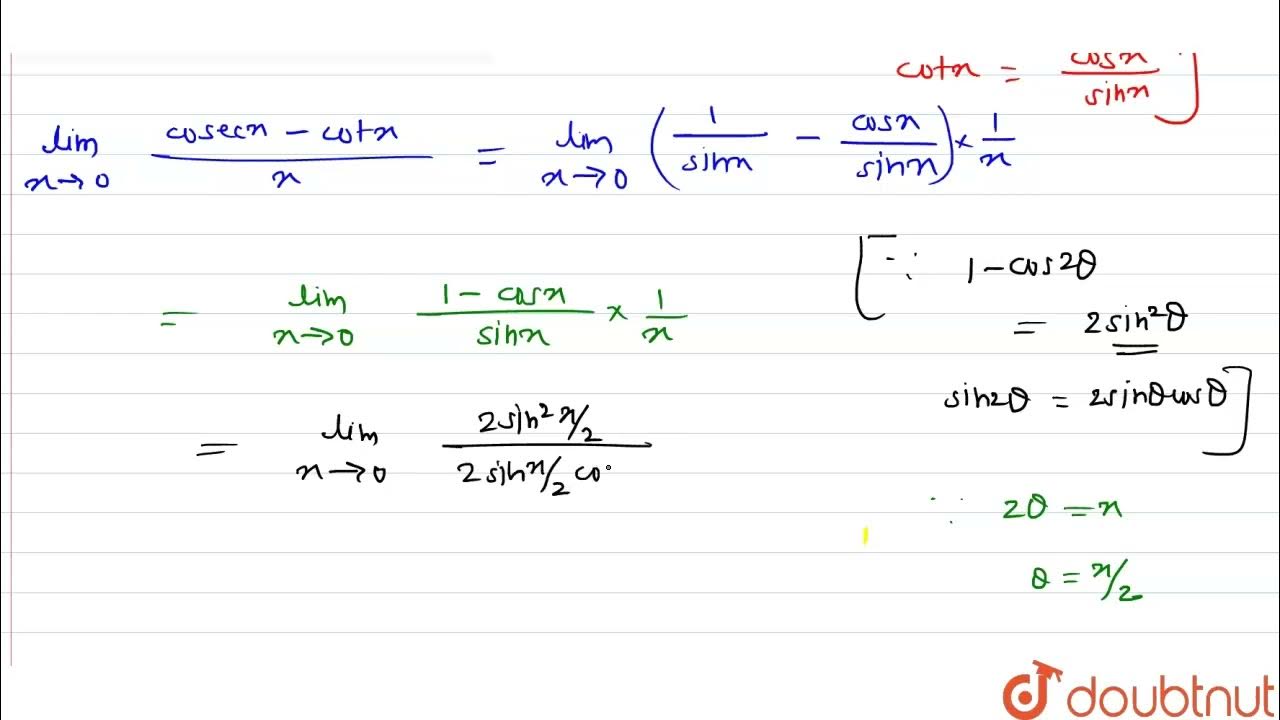 cotx = cosx/sinx ]
lim x→0 (cosecx – cotx)/x = lim x→0 (1/sinx – cosx/sinx) × 1/x
= lim x→0 (1 – cosx)/sinx × 1/x
[∵ 1 – cos2θ
= 2sin²θ
sin2θ = 2sinθcosθ]
= lim x→0 2sin²x/2 / 2sinx/2 co
∵ 2θ = x
θ = x/2
doubtnut